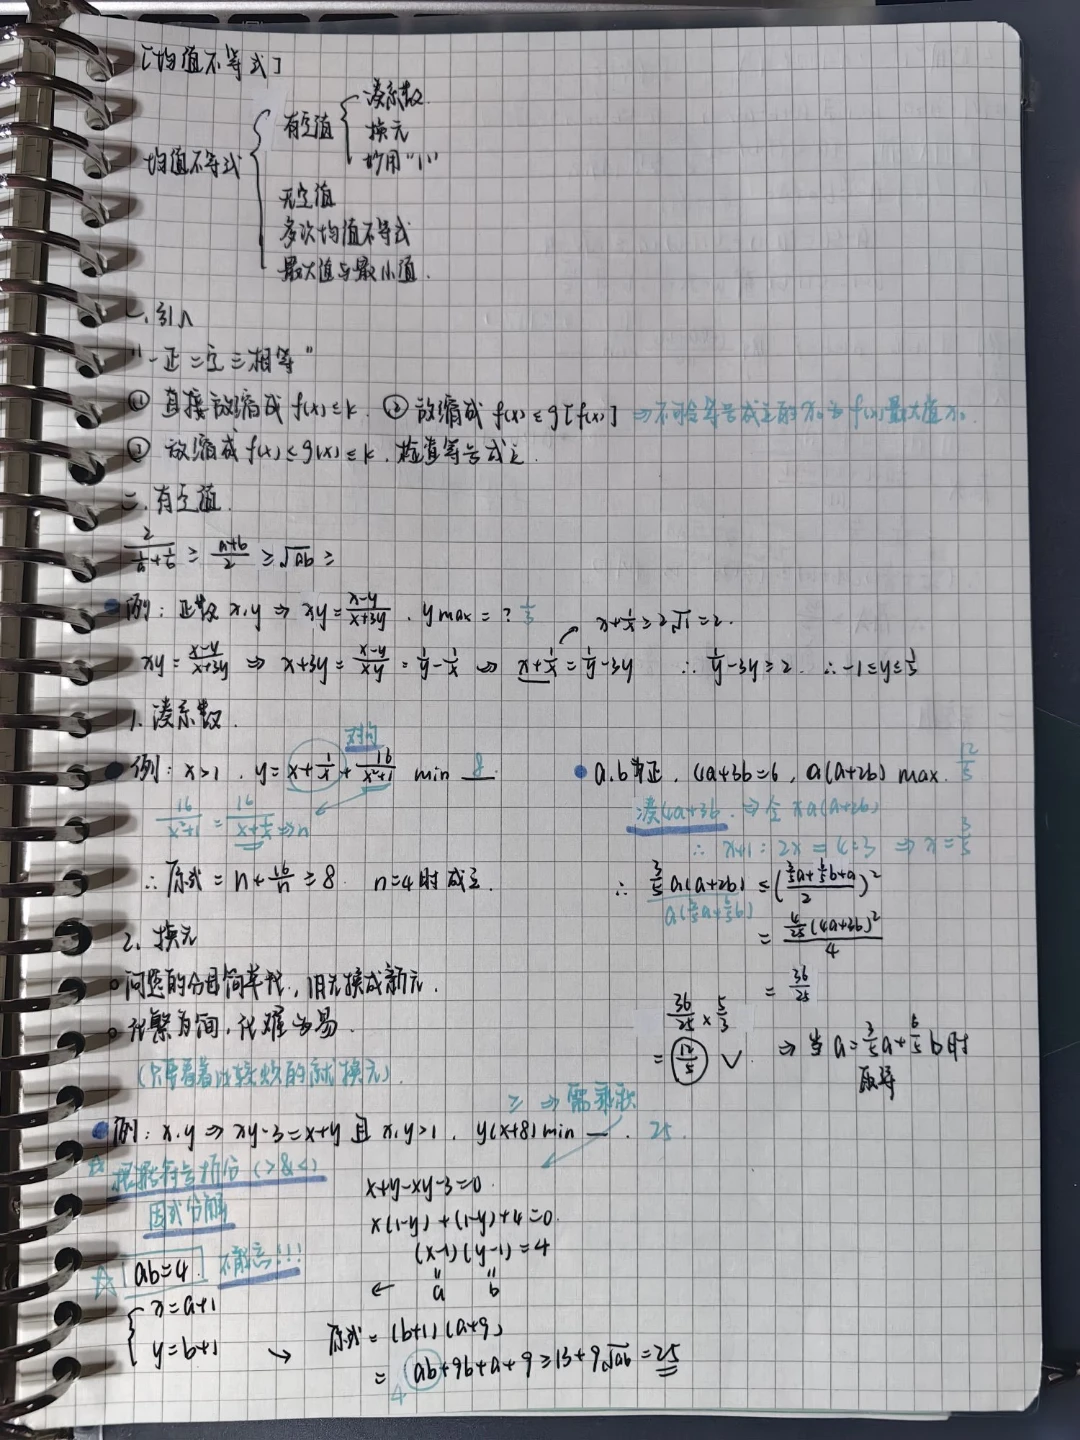 [均值不等式]
均值不等式
有定值
凑系数
换元
妙用"1"
无定值
多次均值不等式
最大值与最小值.
一.引入
"一正二定三相等"
① 直接放缩成 f(x)≤k. ② 放缩成 f(x)≤g[f(x)] ⇒不可合等号成立的x₀为f(x)最大值x₀
③ 放缩成 f(x)≤g(x)≤k,检查等号成立.
二.有定值
2/(1/a+1/b) ≥ (a+b)/2 ≥ √ab ≥
例: 正数 x,y ⇒ xy=(x-y)/(x+3y) . y max = ? 1/3
x+1/x≥2√1=2.
xy=(x-y)/(x+3y) ⇒ x+3y=(x-y)/(xy)=1/y-1/x ⇒ x+1/x=1/y-3y ∴ 1/y-3y≥2. ∴ -1≤y≤1/3
1.凑系数.
对勾
例: x>1 . y=x+1/x+16/(x²+1) min 8
16/(x²+1)=16/(x+1/x)⇒n
∴原式=n+16/n≥8. n=4时成立.
a.b为正. 4a+3b=6, a(a+2b) max. 12/5
凑4a+3b. ⇒全×a(a+2b)
∴ x+1:2x=4:3 ⇒x=3/5
∴ 3/5 a(a+2b) ≤ ((3/5a+6/5b+a)/2)²
a(3/5a+6/5b)
= (4/25(4a+3b)²)/4
= 36/25
36/25 × 5/3
= 12/5 √ ⇒ 当 a=3/5a+6/5b时
取等
2. 换元
○问题的分母简单化,旧元换成新元.
○化繁为简,化难为易.
(只要看着比较烦的就换元).
≥ ⇒需乘积
例: x.y ⇒ xy-3=x+y 且 x.y>1 . y(x+8) min — . 25.
☆根据符号拆分 (>&<)
因式分解
x+y-xy-3=0.
x(1-y)+(1-y)+4=0.
(x-1)(y-1)=4
← a b
☆ ab=4. 不能忘!!!
x=a+1
y=b+1
→ 原式=(b+1)(a+9)
= ab+9b+a+9≥13+9√ab=25
4